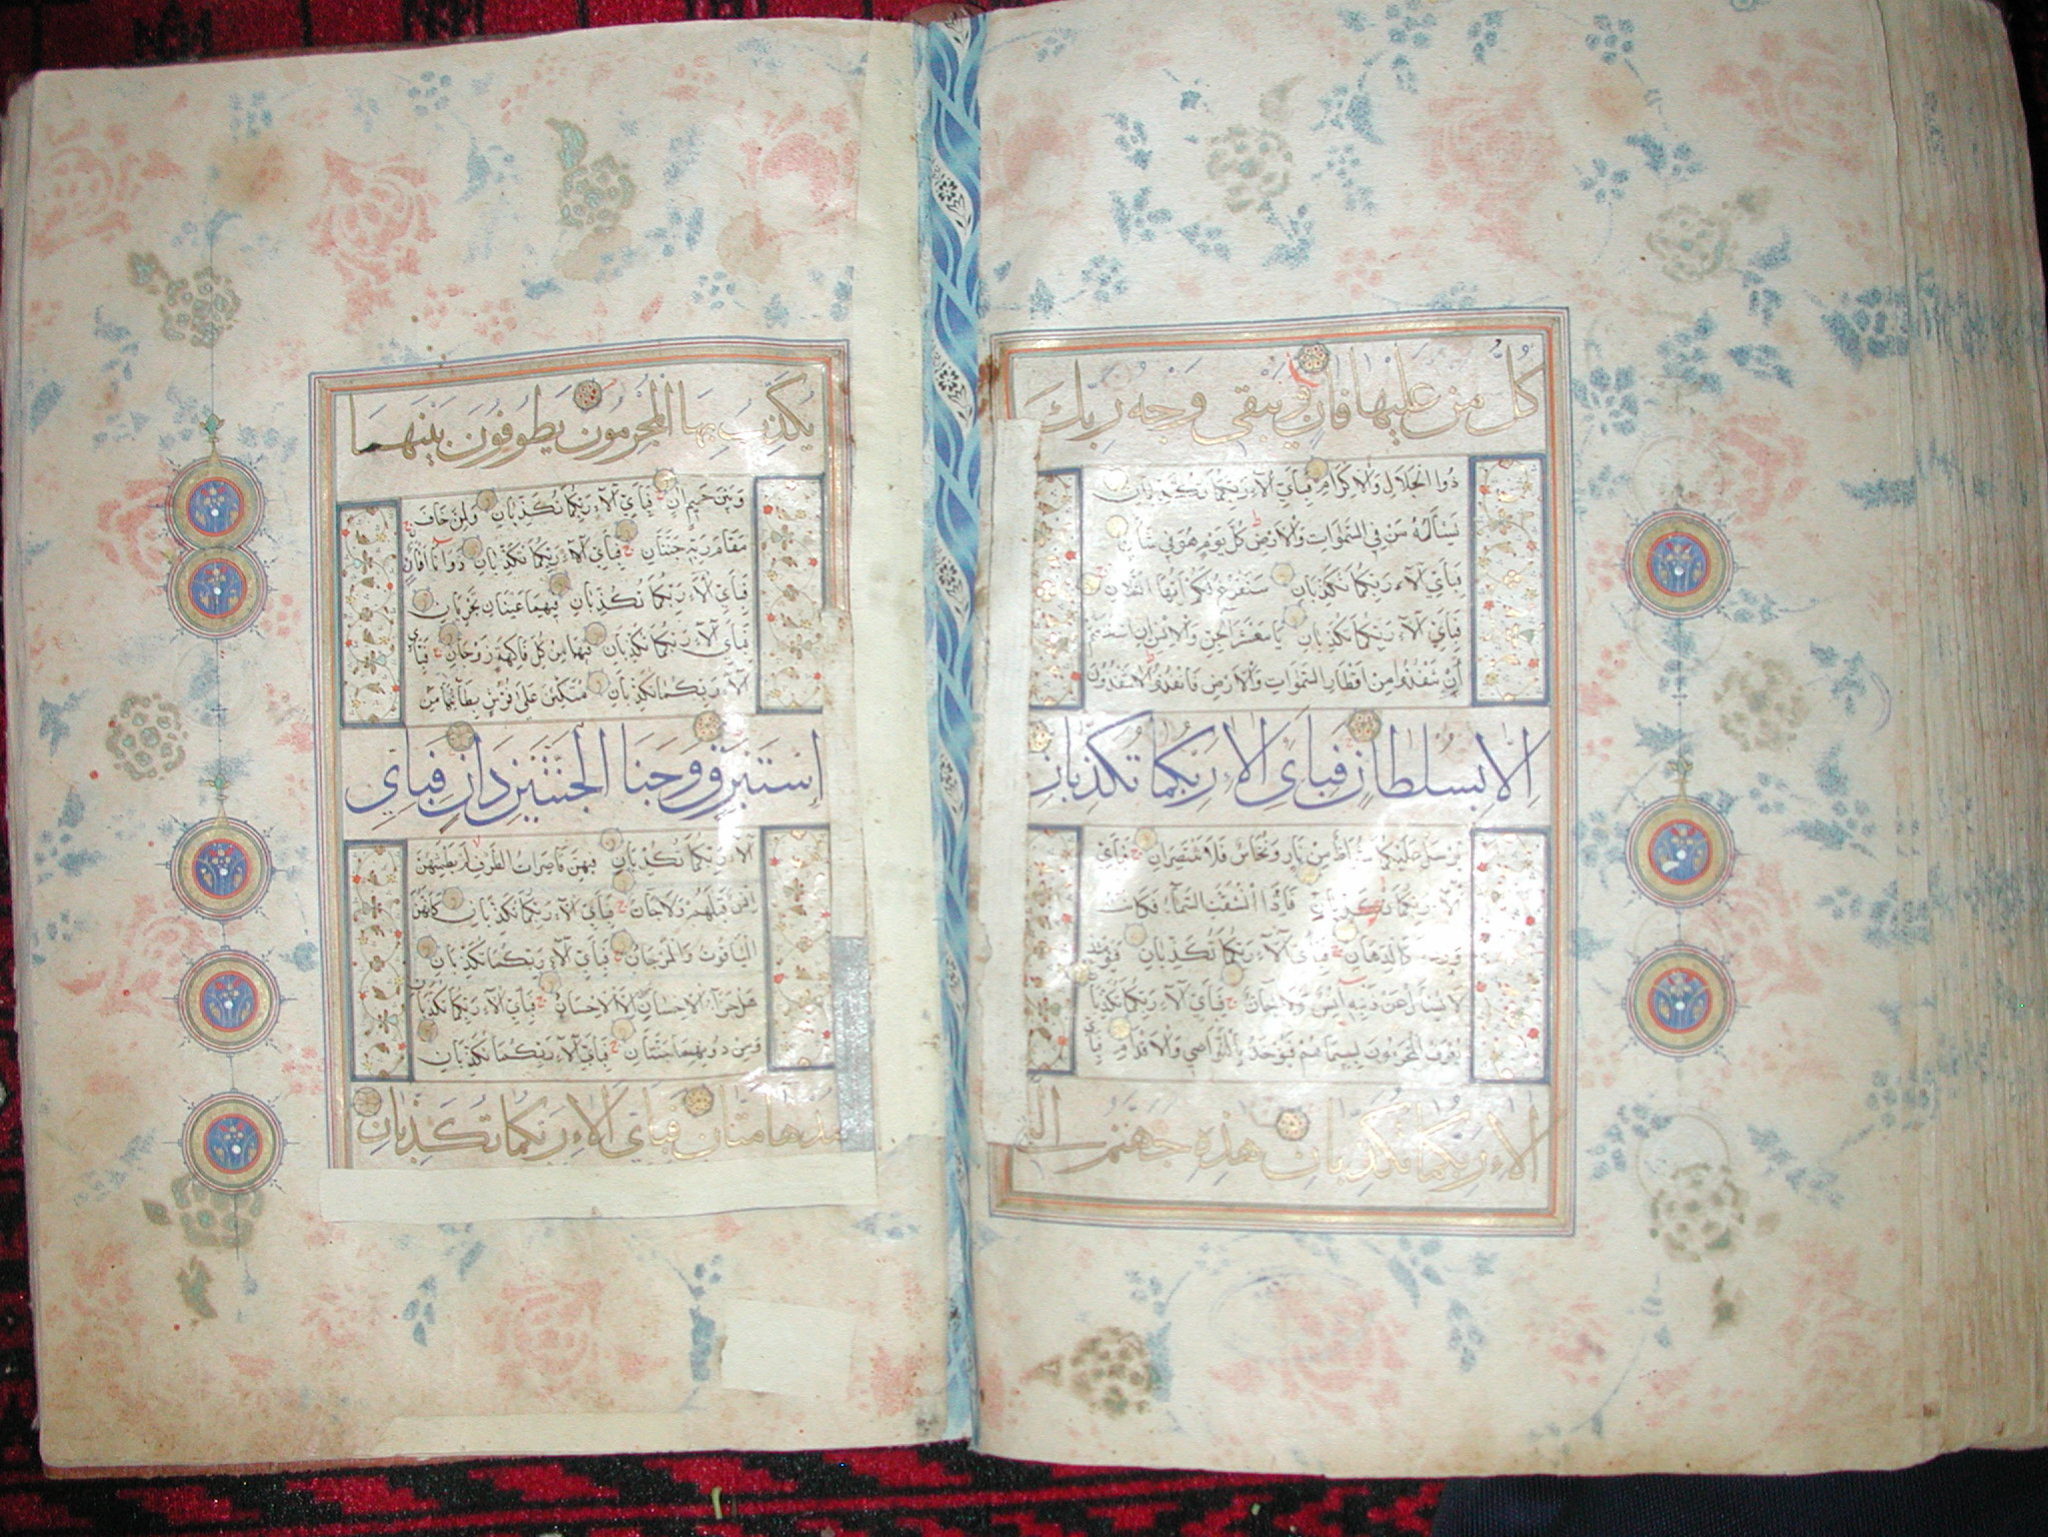 كُلُّ مَنْ عَلَيْهَا فَانٍ وَيَبْقَى وَجْهُ رَبِّكَ
ذُوا الْجَلَالِ وَالْاِكْرَامِ فَبِأَيِّ آلَاءِ رَبِّكُمَا تُكَذِّبَانِ
يَسْأَلُهُ مَنْ فِي السَّمٰوَاتِ وَالْاَرْضِ كُلَّ يَوْمٍ هُوَ فِي شَأْنٍ
فَبِأَيِّ آلَاءِ رَبِّكُمَا تُكَذِّبَانِ سَنَفْرُغُ لَكُمْ اَيُّهَا الثَّقَلَانِ
فَبِأَيِّ آلَاءِ رَبِّكُمَا تُكَذِّبَانِ يَا مَعْشَرَ الْجِنِّ وَالْاِنْسِ اِنِ اسْتَطَعْتُمْ
أَنْ تَنْفُذُوا مِنْ اَقْطَارِ السَّمٰوَاتِ وَالْاَرْضِ فَانْفُذُوا لَا تَنْفُذُونَ
اِلَّا بِسُلْطَانٍ فَبِأَيِّ آلَاءِ رَبِّكُمَا تُكَذِّبَانِ
يُرْسَلُ عَلَيْكُمَا شُوَاظٌ مِنْ نَارٍ وَنُحَاسٌ فَلَا تَنْتَصِرَانِ فَبِأَيِّ
آلَاءِ رَبِّكُمَا تُكَذِّبَانِ فَاِذَا انْشَقَّتِ السَّمَاءُ فَكَانَتْ
وَرْدَةً كَالدِّهَانِ فَبِأَيِّ آلَاءِ رَبِّكُمَا تُكَذِّبَانِ فَيَوْمَئِذٍ
لَا يُسْأَلُ عَنْ ذَنْبِهِ اِنْسٌ وَلَا جَانٌّ فَبِأَيِّ آلَاءِ رَبِّكُمَا تُكَذِّبَانِ
يُعْرَفُ الْمُجْرِمُونَ بِسِيمَاهُمْ فَيُؤْخَذُ بِالنَّوَاصِي وَالْاَقْدَامِ فَبِأَيِّ
آلَاءِ رَبِّكُمَا تُكَذِّبَانِ هٰذِهِ جَهَنَّمُ الَّتِي
يُكَذِّبُ بِهَا الْمُجْرِمُونَ يَطُوفُونَ بَيْنَهَا
وَبَيْنَ حَمِيمٍ آنٍ فَبِأَيِّ آلَاءِ رَبِّكُمَا تُكَذِّبَانِ وَلِمَنْ خَافَ
مَقَامَ رَبِّهِ جَنَّتَانِ فَبِأَيِّ آلَاءِ رَبِّكُمَا تُكَذِّبَانِ ذَوَاتَا اَفْنَانٍ
فَبِأَيِّ آلَاءِ رَبِّكُمَا تُكَذِّبَانِ فِيهِمَا عَيْنَانِ تَجْرِيَانِ
فَبِأَيِّ آلَاءِ رَبِّكُمَا تُكَذِّبَانِ فِيهِمَا مِنْ كُلِّ فَاكِهَةٍ زَوْجَانِ فَبِأَيِّ
آلَاءِ رَبِّكُمَا تُكَذِّبَانِ مُتَّكِئِينَ عَلٰى فُرُشٍ بَطَائِنُهَا مِنْ
اِسْتَبْرَقٍ وَجَنَا الْجَنَّتَيْنِ دَانٍ فَبِأَيِّ
آلَاءِ رَبِّكُمَا تُكَذِّبَانِ فِيهِنَّ قَاصِرَاتُ الطَّرْفِ لَمْ يَطْمِثْهُنَّ
اِنْسٌ قَبْلَهُمْ وَلَا جَانٌّ فَبِأَيِّ آلَاءِ رَبِّكُمَا تُكَذِّبَانِ كَأَنَّهُنَّ
الْيَاقُوتُ وَالْمَرْجَانُ فَبِأَيِّ آلَاءِ رَبِّكُمَا تُكَذِّبَانِ
هَلْ جَزَاءُ الْاِحْسَانِ اِلَّا الْاِحْسَانُ فَبِأَيِّ آلَاءِ رَبِّكُمَا تُكَذِّبَانِ
وَمِنْ دُونِهِمَا جَنَّتَانِ فَبِأَيِّ آلَاءِ رَبِّكُمَا تُكَذِّبَانِ
مُدْهَامَّتَانِ فَبِأَيِّ آلَاءِ رَبِّكُمَا تُكَذِّبَانِ